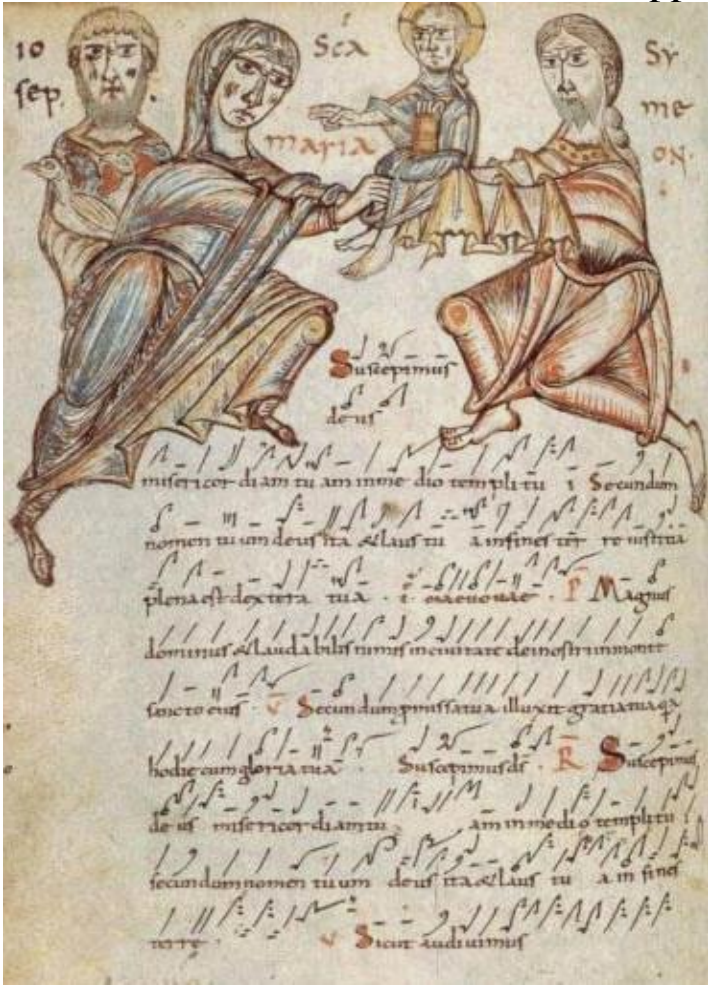 io
sep.
Sca
maria
Sy
me
on.
Suscepimus
deus
misericordiam tuam in medio templi tui Secundum
nomen tuum deus ita & laus tua in fines terre iustitia
plena est dextera tua . P Magnus
dominus & laudabilis nimis in ciuitate dei nostri in monte
sancto eius . V Secundum tua illuxit gratia tua
hodie cum gloria tua . Suscepimus ds . R Suscepimus
deus misericordiam tuam in medio templi tui
secundum nomen tuum deus ita & laus tua in fines
terre . V Sicut audiuimus